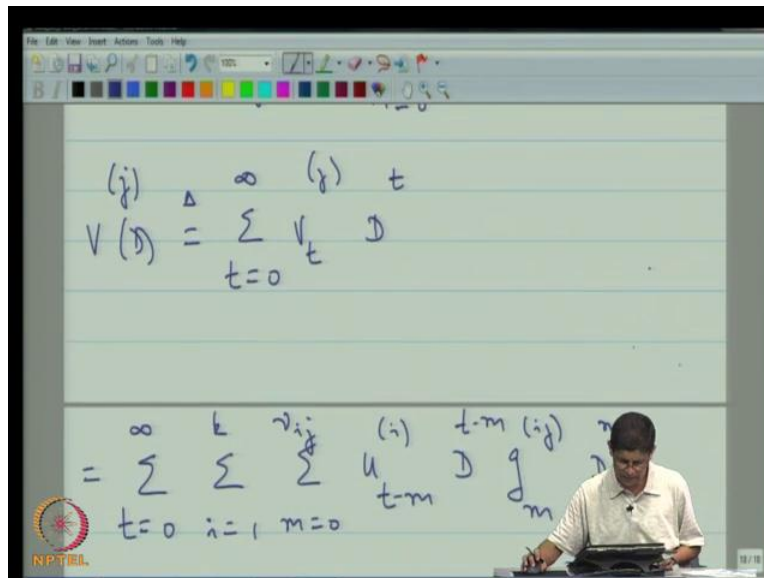 File Edit View Insert Actions Tools Help
100%
B I
V^{(j)}(D) ≜ \sum_{t=0}^{∞} V_t^{(j)} D^t
= \sum_{t=0}^{∞} \sum_{i=1}^{k} \sum_{m=0}^{ν_{ij}} u_{t-m}^{(i)} D^{t-m} g_m^{(ij)} D
NPTEL
18/18